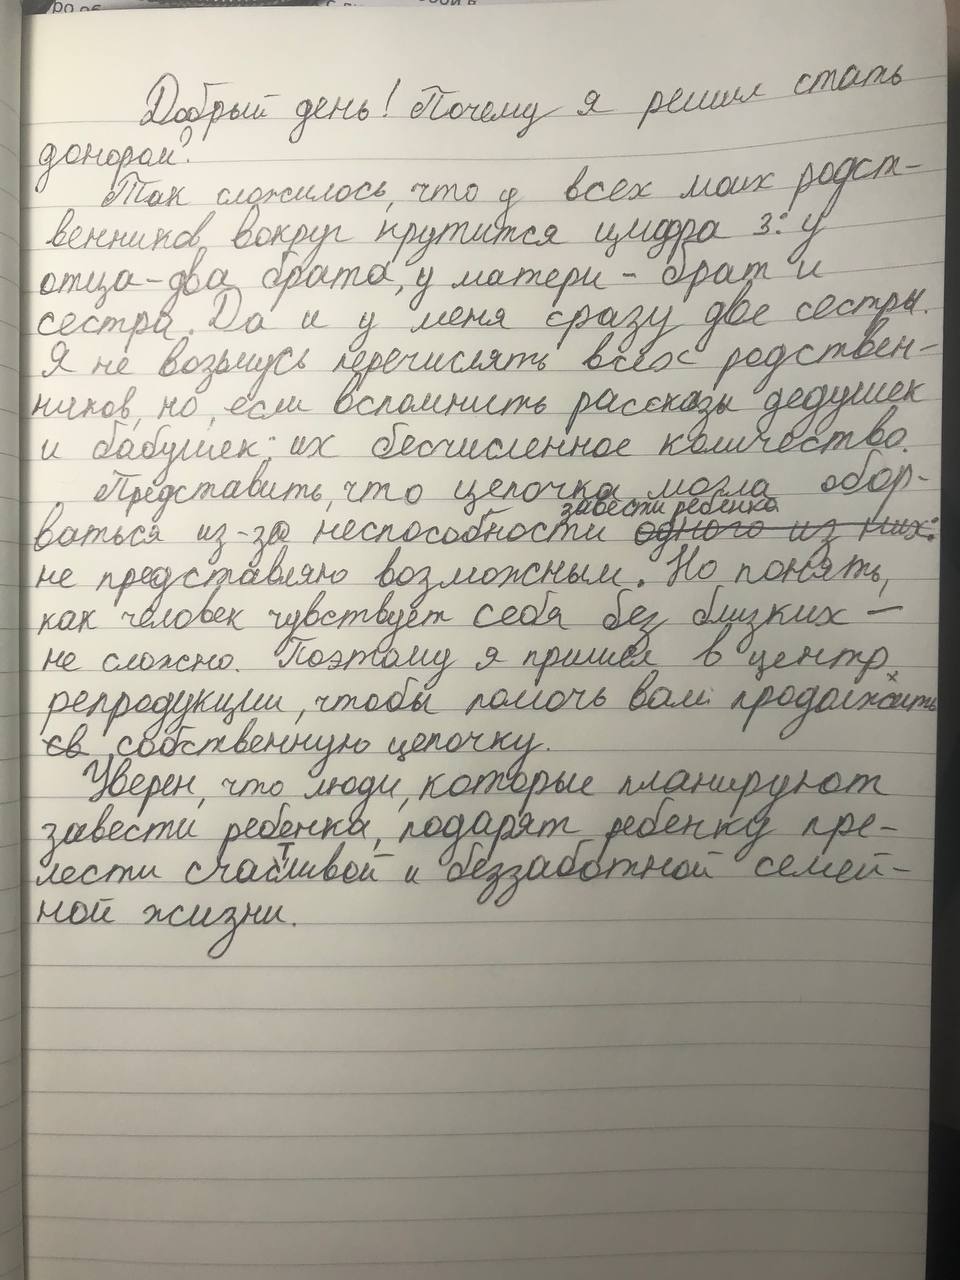 Добрый день! Почему я решил стать
донором?
Так сложилось, что у всех моих родст-
венников вокруг крутится цифра 3: у
отца - два брата, у матери - брат и
сестра. Да и у меня сразу две сестры.
Я не возьмусь перечислять всех родствен-
ников, но, если вспомнить рассказы дедушек
и бабушек: их бесчисленное количество.
Представить, что цепочка могла обор-
завести ребенка
ваться из-за неспособности одного из них:
не представляю возможным. Но понять,
как человек чувствует себя без близких —
не сложно. Поэтому я пришел в центр
репродукции, чтобы помочь вам продолжить
собственную цепочку.
Уверен, что люди, которые планируют
завести ребенка, подарят ребенку пре-
лести счастливой и беззаботной семей-
ной жизни.